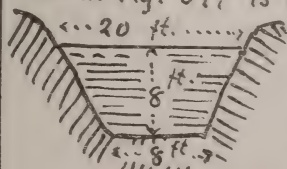 20 ft.
8 ft.
8 ft.